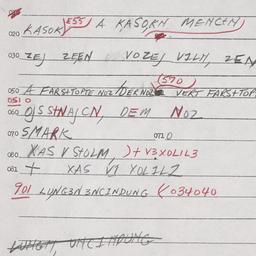 020 KASOK E55 A KASORN MENCEN
030 ZEJ ZEEN VOZEJ VILH, ZEN
(570)
050 A FARSHTOPTE NOZ/DERNOZ VERT FARSHTOP
051 0
060 OJSSTNAJCN, DEM NOZ
070 SMARK 071 0
080 XAS V STOLM, )+ V3XOLIL3
081 + XAS VI XOLILZ
901 LUNG3N3NCINDUNG (034040